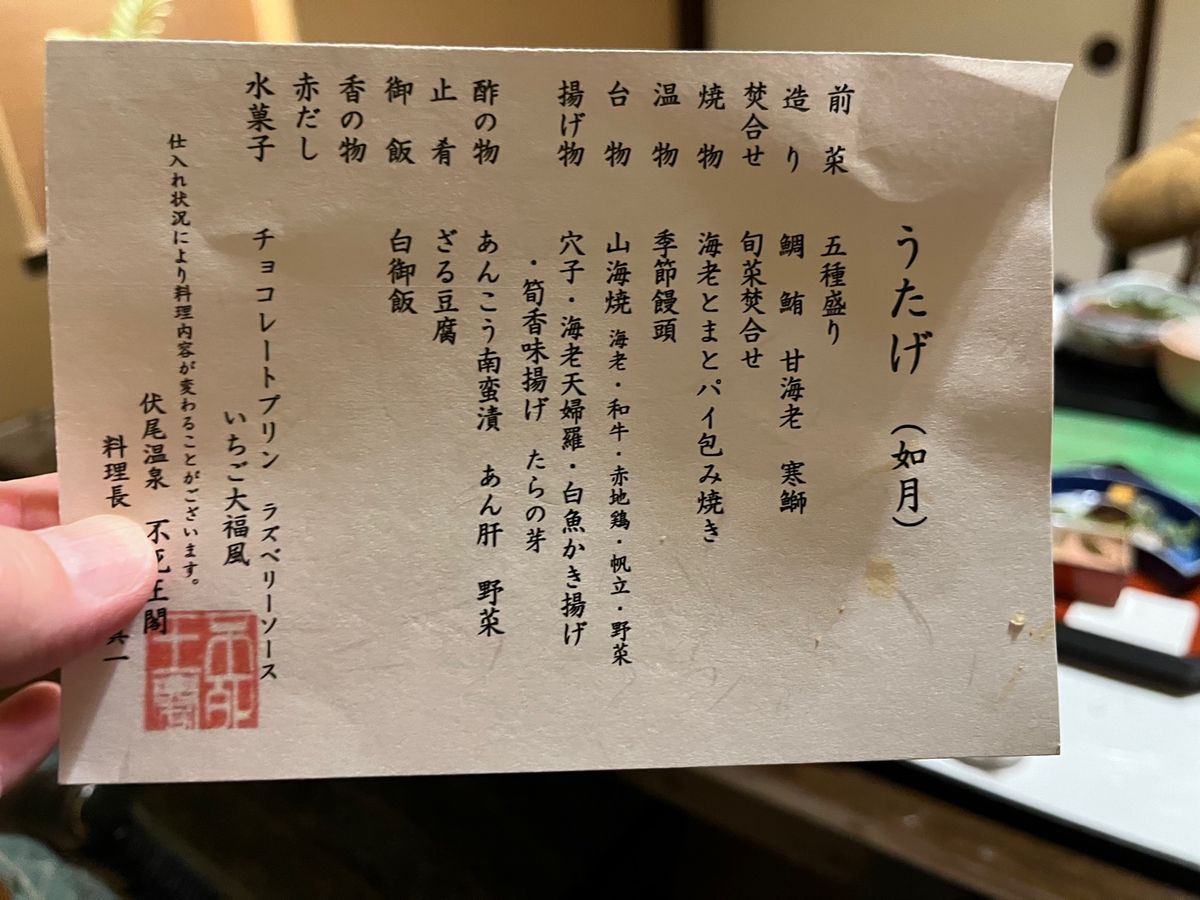 うたげ （如月）
前菜 五種盛り
造り 鯛 鮪 甘海老 寒鰤
焚合せ 旬菜焚合せ
焼物 海老とまとパイ包み焼き
温物 季節饅頭
台物 山海焼 海老・和牛・赤地鶏・帆立・野菜
揚げ物 穴子・海老天婦羅・白魚かき揚げ
・筍香味揚げ たらの芽
酢の物 あんこう南蛮漬 あん肝 野菜
止肴 ざる豆腐
御飯 白御飯
香の物
赤だし
水菓子 チョコレートプリン ラズベリーソース
いちご大福風
仕入れ状況により料理内容が変わることがございます。
伏尾温泉 不死王閣
料理長 一